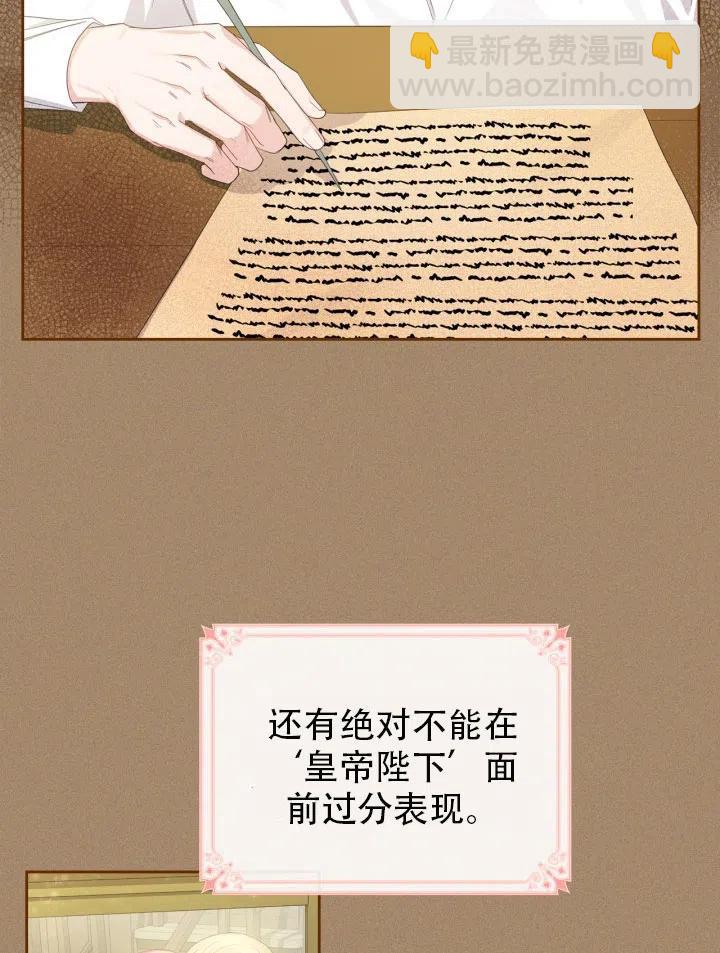 👇最新免费漫画👇
www.baozimh.com
还有绝对不能在
‘皇帝陛下’面
前过分表现。